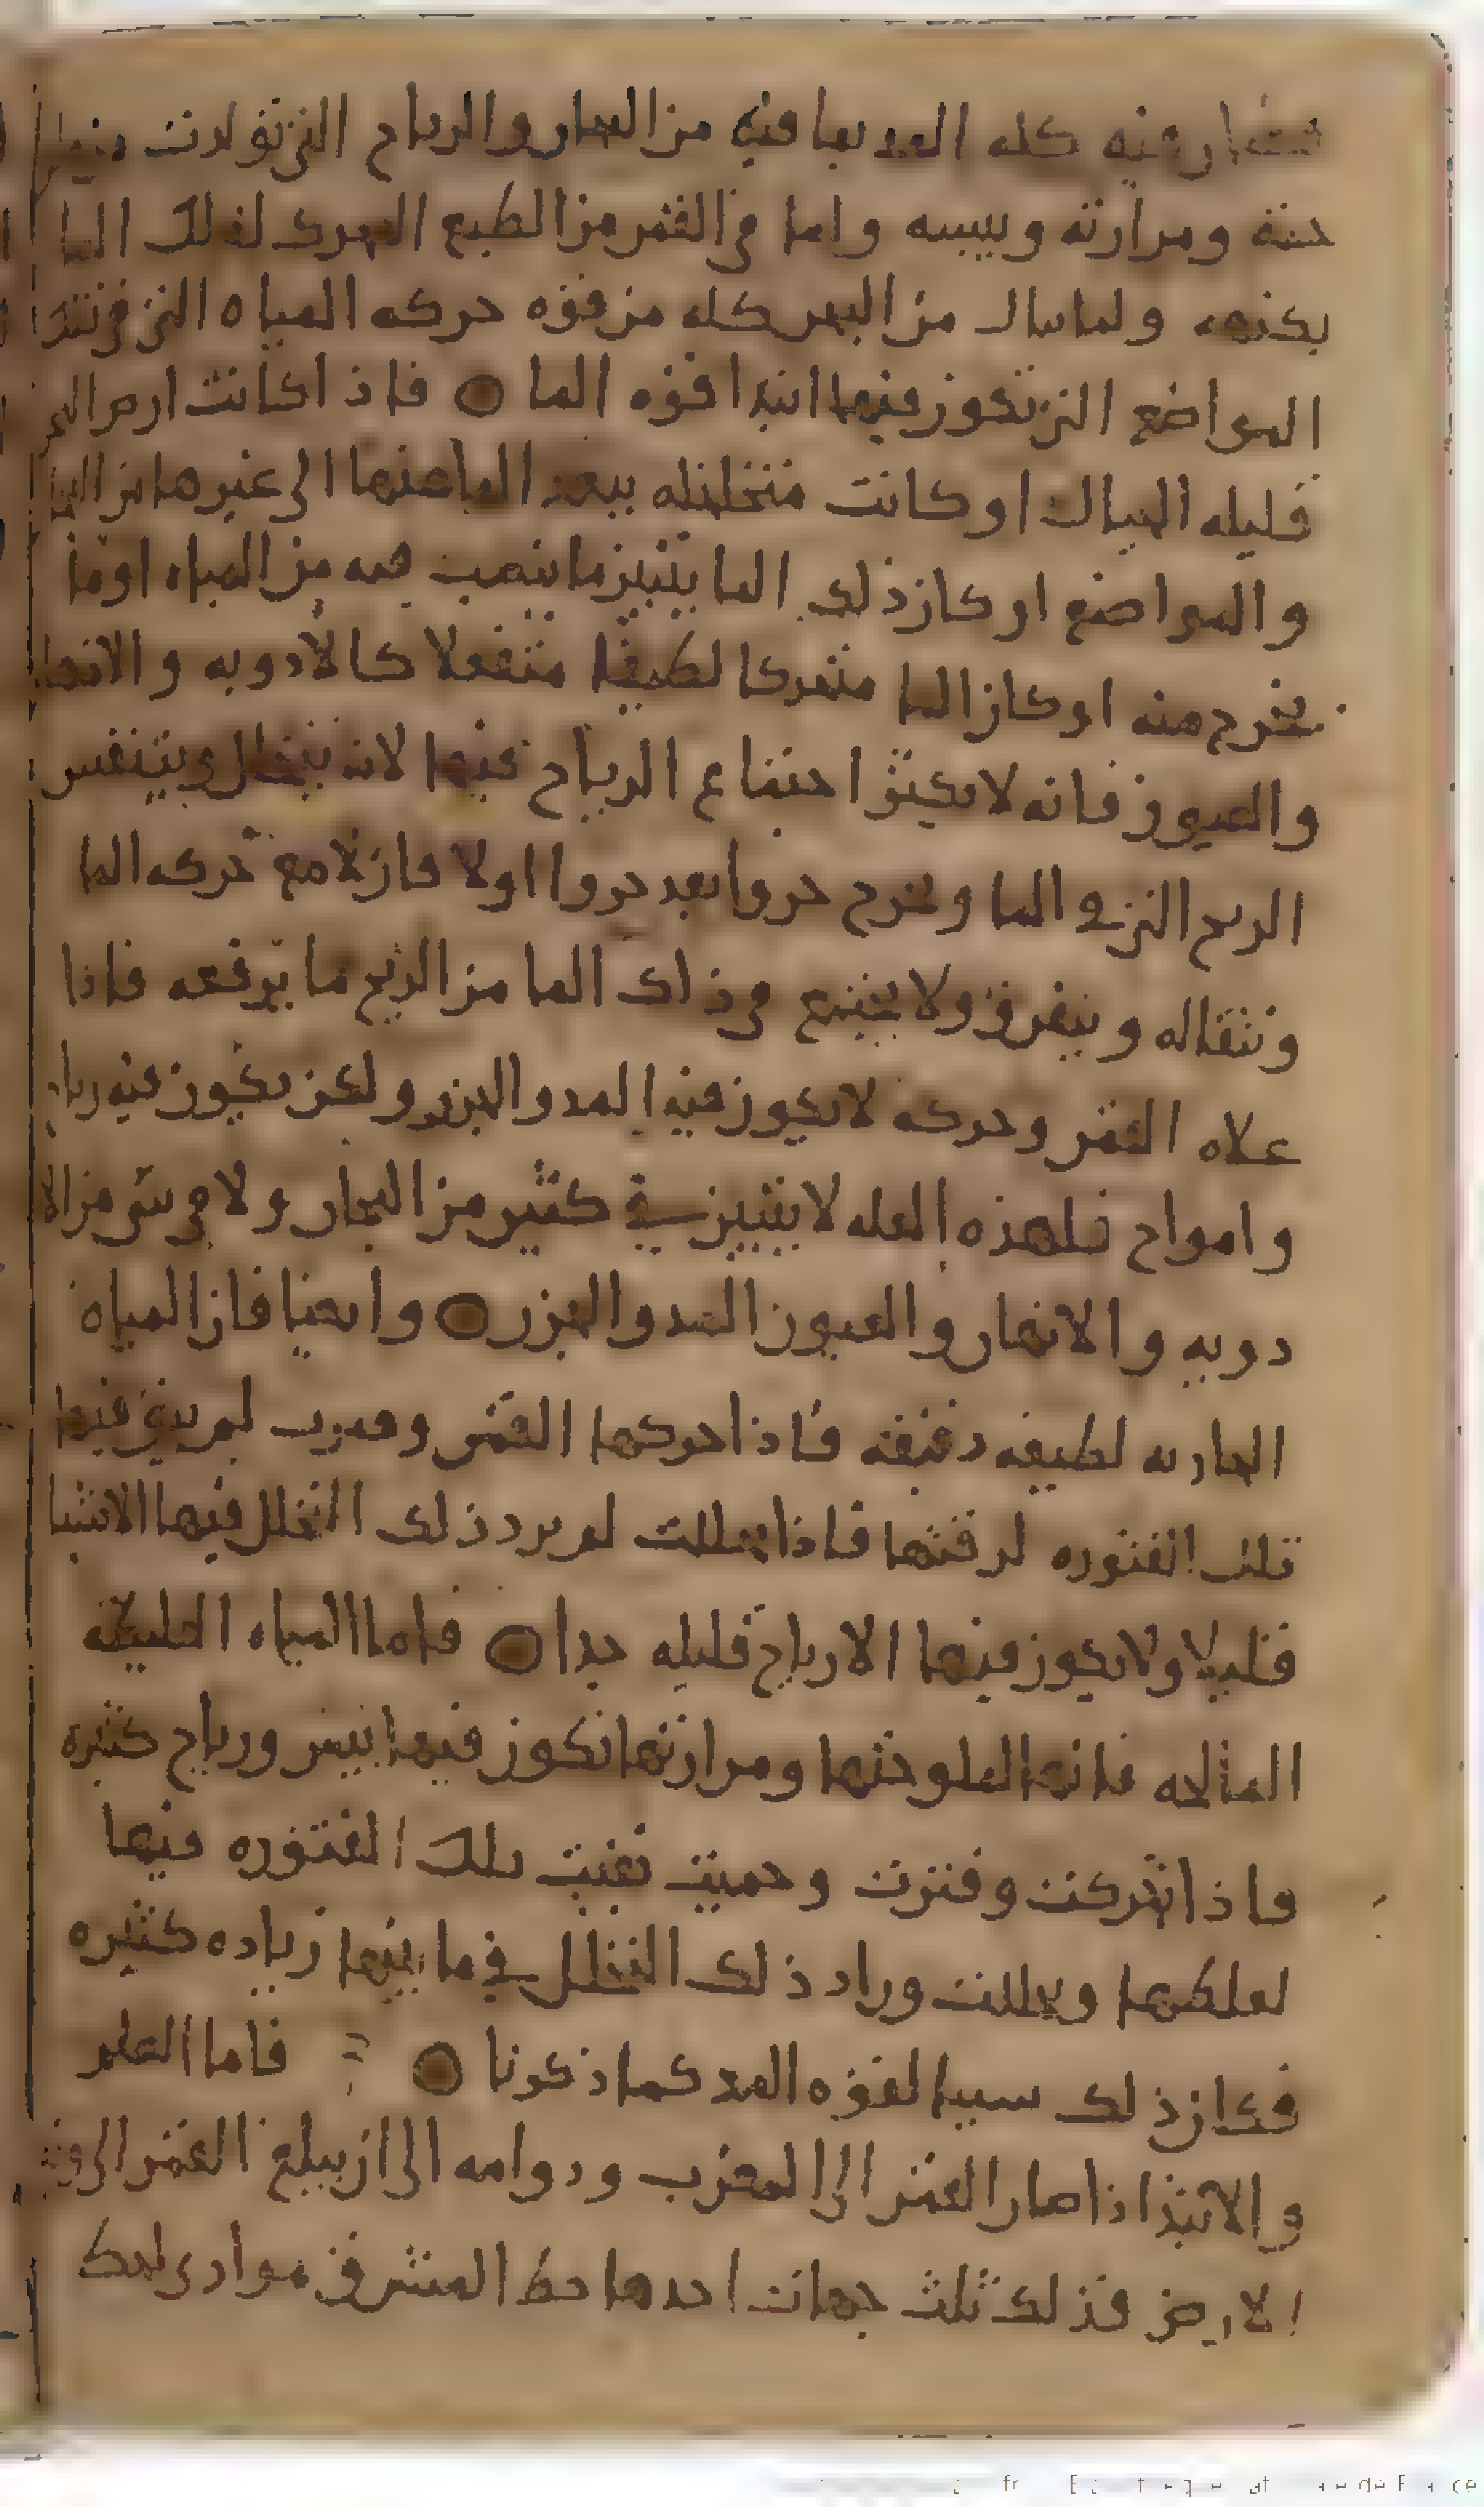 فيه كله المد بما فيه من البخار والرياح التي تولدت فيه
ومرارته ويبسه واما في القمر من الطبع المحرك لذلك الما
ولما ينال من البحر كله من قوه حركه المياه التي
المواضع التي تكون فيها ابتدا قوه الما ○ فاذا كانت ارض البحر
قليله الجبال او كانت متخلخله يبعد الما عنها الى غيرها من
والمواضع او كان ذلك الما يتبين ما ينصب فيه من المياه او ما
يخرج منه او كان الما متحركا لطيفا منتقلا كالأدويه والانهار
والعيون فانه لا يكثر اجتماع الرياح فيها لانه يتخلل ويتنفس
الريح التي في الما ويخرج جزوا بعد جزوا اولا فاولا مع حركه الما
وتنقاله ويتفرق ولا يجتمع في ذلك الما من الريح ما يرفعه فاذا
علاه القمر وحركه لا يكون فيه المد والجزر ولكن يكون فيه رياح
وامواج فلهذه العله لا يتبين في كثير من البحار ولا في شي من الا
دويه والانهار والعيون المد والجزر ○ وايضا فان المياه
الجاريه لطيفه دقيقه فاذا حركها القمر وقرب لم يبق فيها
تلك الفتوره لرقتها فاذا تحللت لم يزد ذلك التخلل فيها الا شيا
قليلا ولا يكون فيها الا رياح قليله جدا ○ فاما المياه الغليظه
المالحه فانها لملوحتها ومرارتها تكون فيها يبس ورياح كثيره
فاذا تحركت وفترت وحميت بقيت تلك الفتوره فيها
لغلظها وتحللت وزاد ذلك التخلل في ما بينها زياده كثيره
فكان ذلك سببا لقوه المد كما ذكرنا ○ فاما العلم
والاثنين اذا صار القمر الى المغرب ودوامه الى ان يبلغ القمر الى وتد
الارض فذلك ثلث جهات احدها خط المشرق